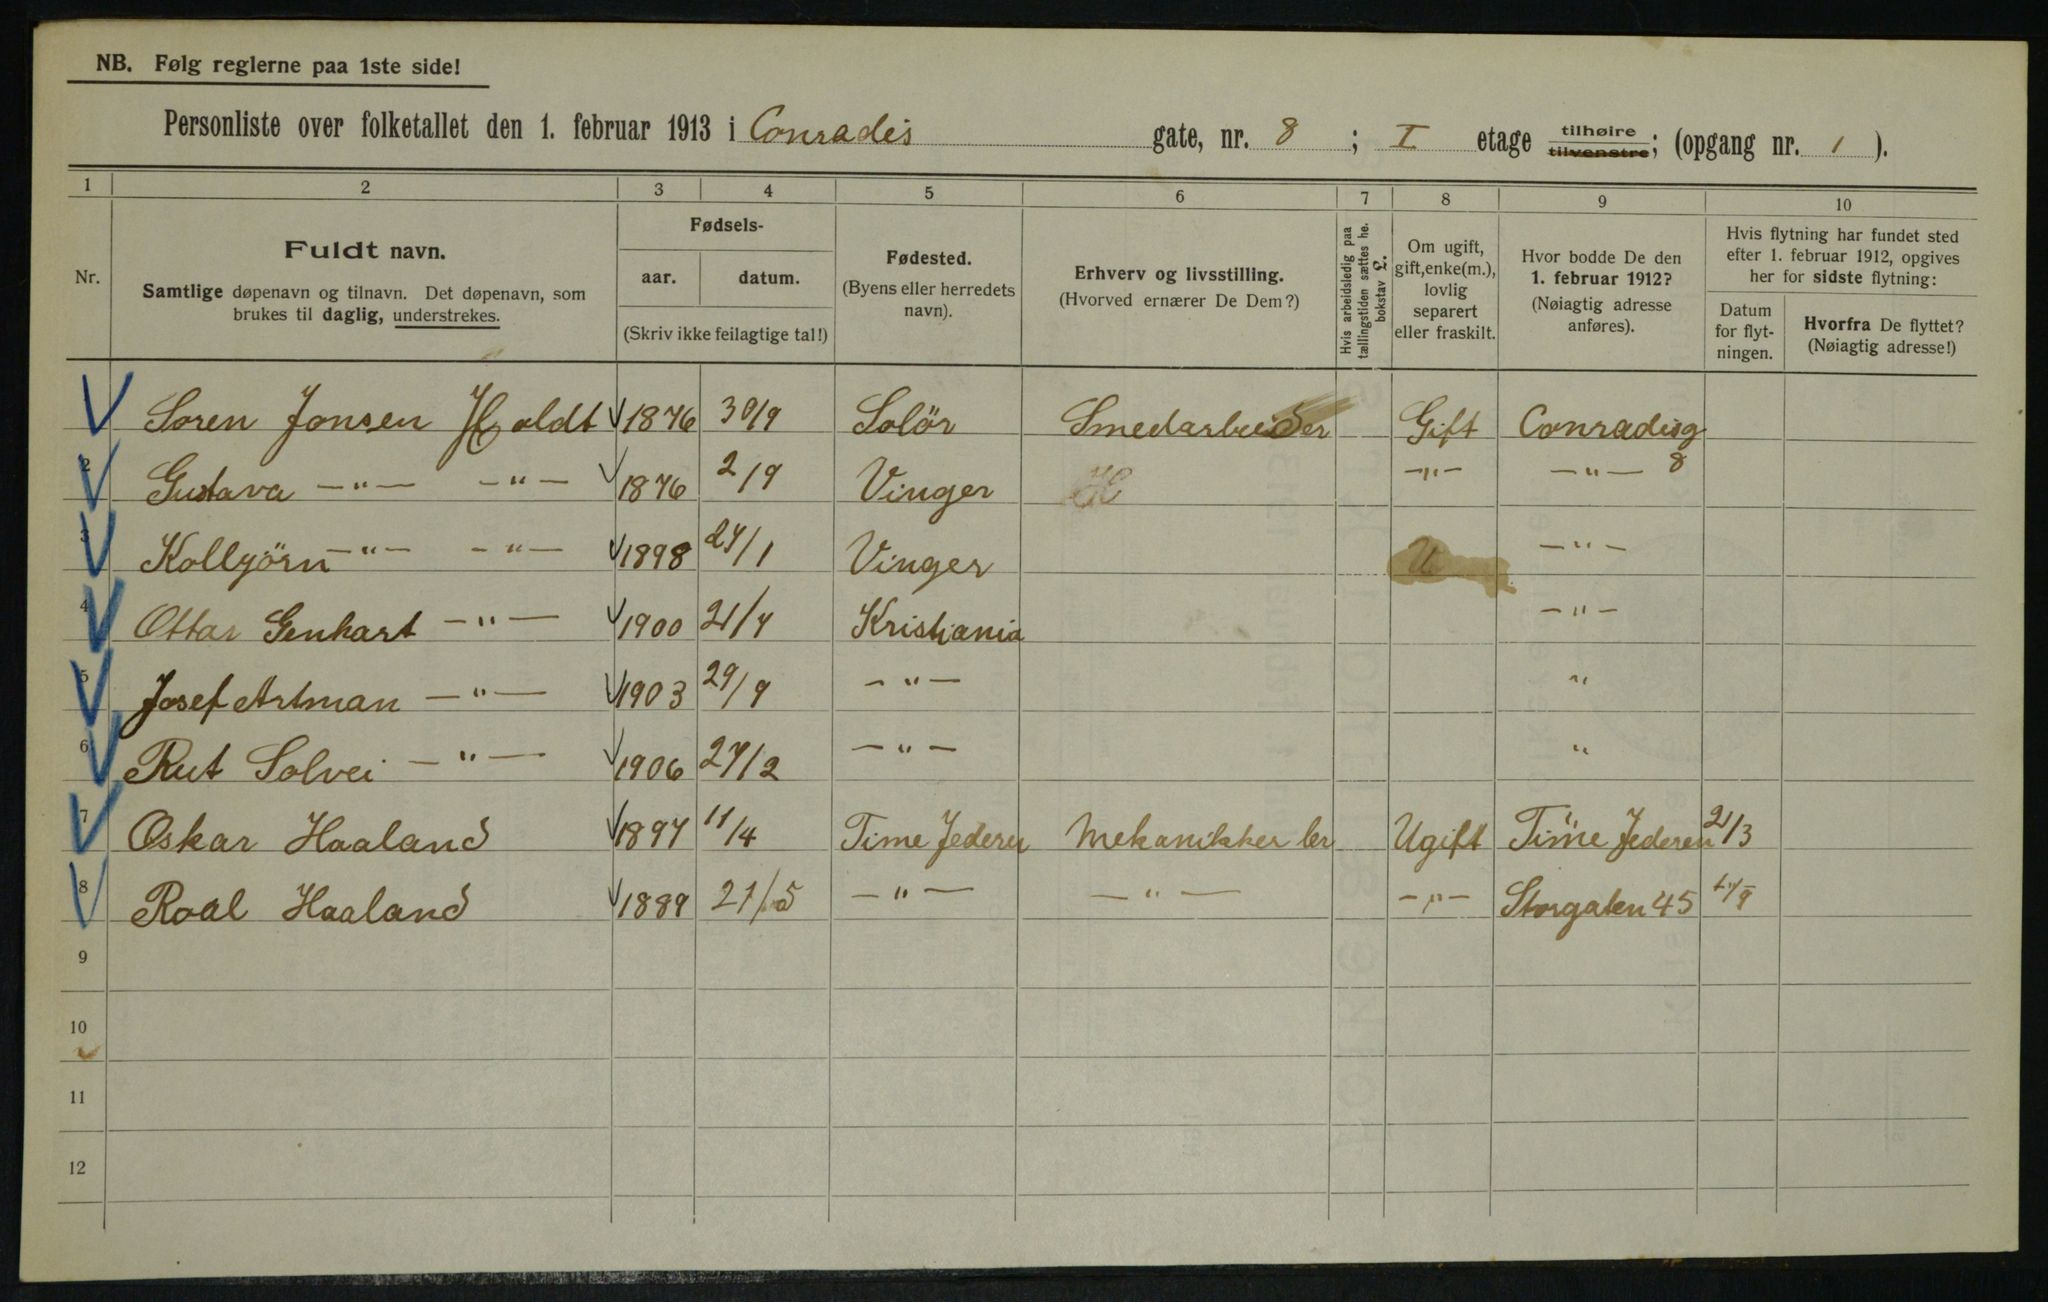 NB. Følg reglerne paa 1ste side!
Personliste over folketallet den 1. februar 1913 i Conradis gate, nr. 8 ; I etage tilhøire tilvenstre; (opgang nr. 1 ).
1 2 3 4 5 6 7 8 9 10
Nr.
Fuldt navn.
Samtlige døpenavn og tilnavn. Det døpenavn, som
brukes til daglig, understrekes.
Fødsels-
aar. datum.
(Skriv ikke feilagtige tal!)
Fødested.
(Byens eller herredets
navn).
Erhverv og livsstilling.
(Hvorved ernærer De Dem?)
Hvis arbeidsledig paa
tællingstiden sættes he.
bokstav £.
Om ugift,
gift,enke(m.),
lovlig
separert
eller fraskilt.
Hvor bodde De den
1. februar 1912?
(Nøiagtig adresse
anføres).
Hvis flytning har fundet sted
efter 1. februar 1912, opgives
her for sidste flytning:
Datum
for flyt-
ningen.
Hvorfra De flyttet?
(Nøiagtig adresse!)
Soren Jonsen Holdt 1876 30/9 Solör Smedarbeider Gift Conradisg
2 Gustava —"— —"— 1876 2/9 Vinger H —"— —"— 8
3 Kolbjörn —"— —"— 1898 27/1 Vinger U —"—
4 Ottar Genhart —"— 1900 21/7 Kristiania —"—
5 Josef Artman —"— 1903 29/9 —"— "
6 Rut Solvei —"— 1906 27/2 —"— "
7 Oskar Haaland 1897 11/4 Time Jederen Mekanikker ler Ugift Time Jederen 2/3
8 Roal Haaland 1889 27/5 —"— —"— —"— Storgaten 45
9
10
11
12